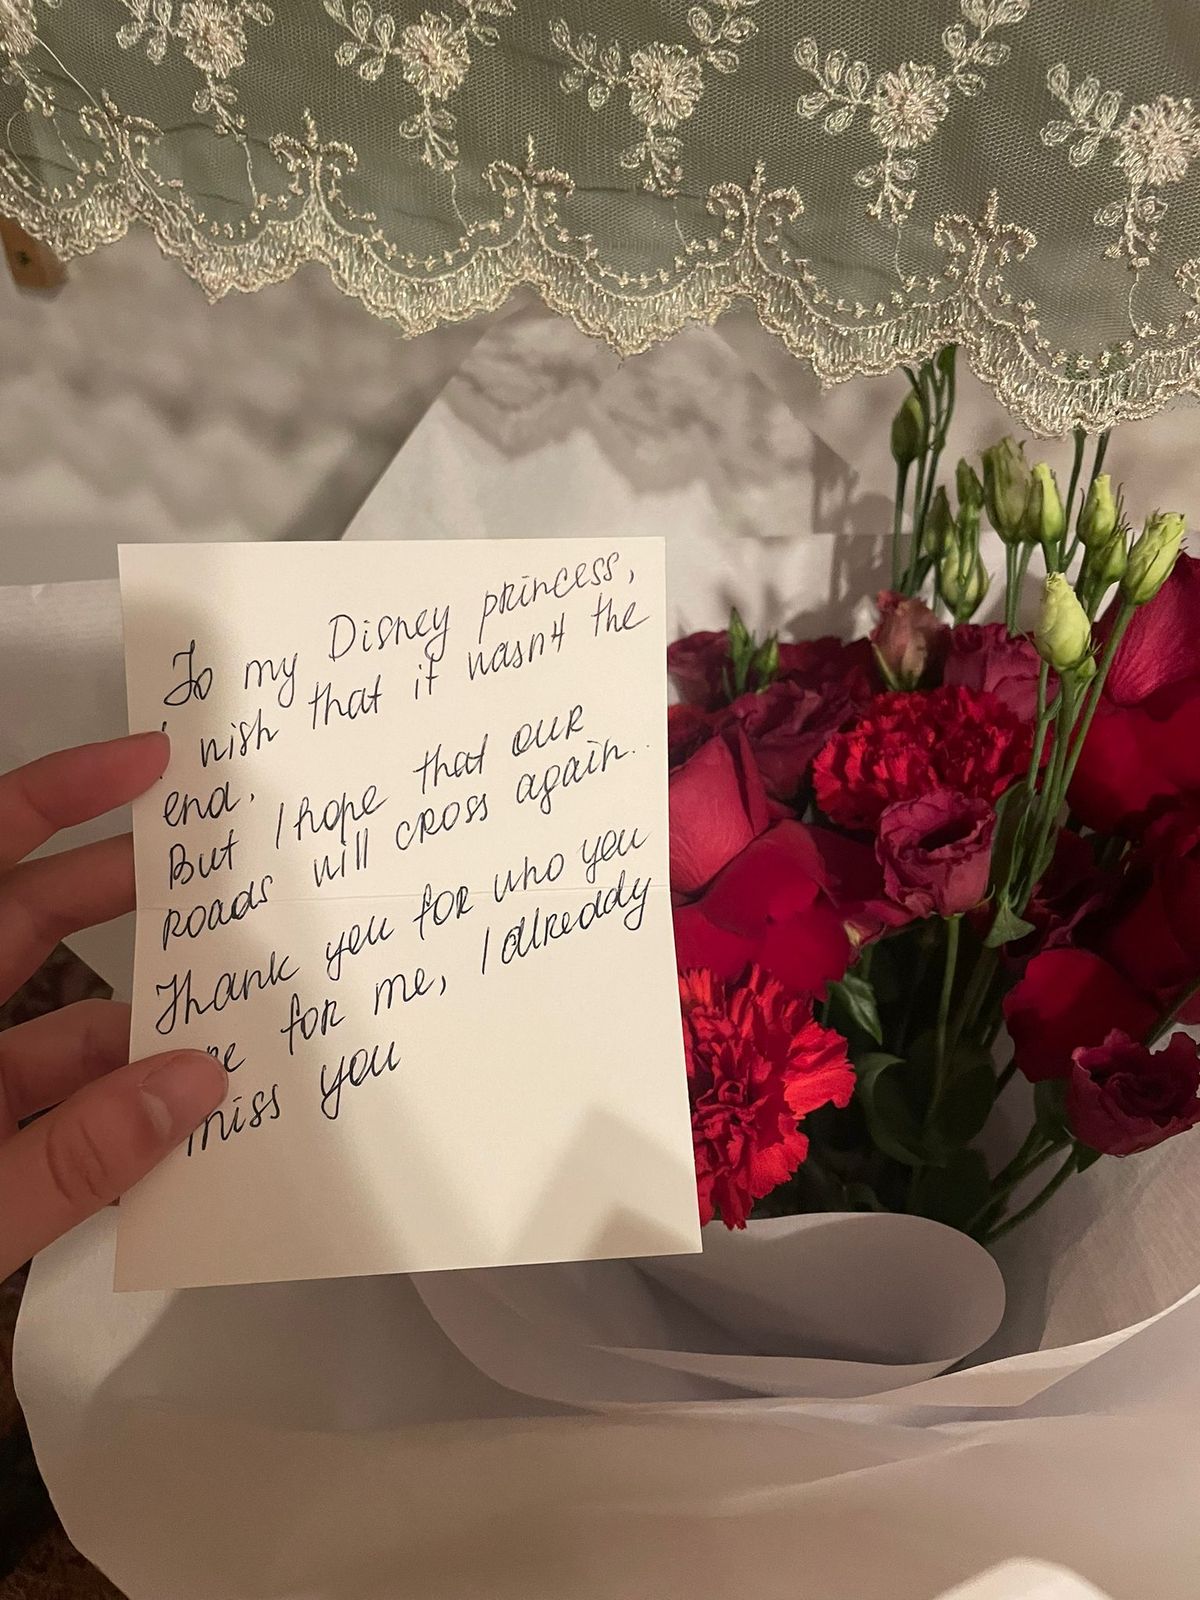 To my Disney princess,
I wish that it wasn't the
end.
But I hope that our
roads will cross again..
Thank you for who you
for me, I already
miss you